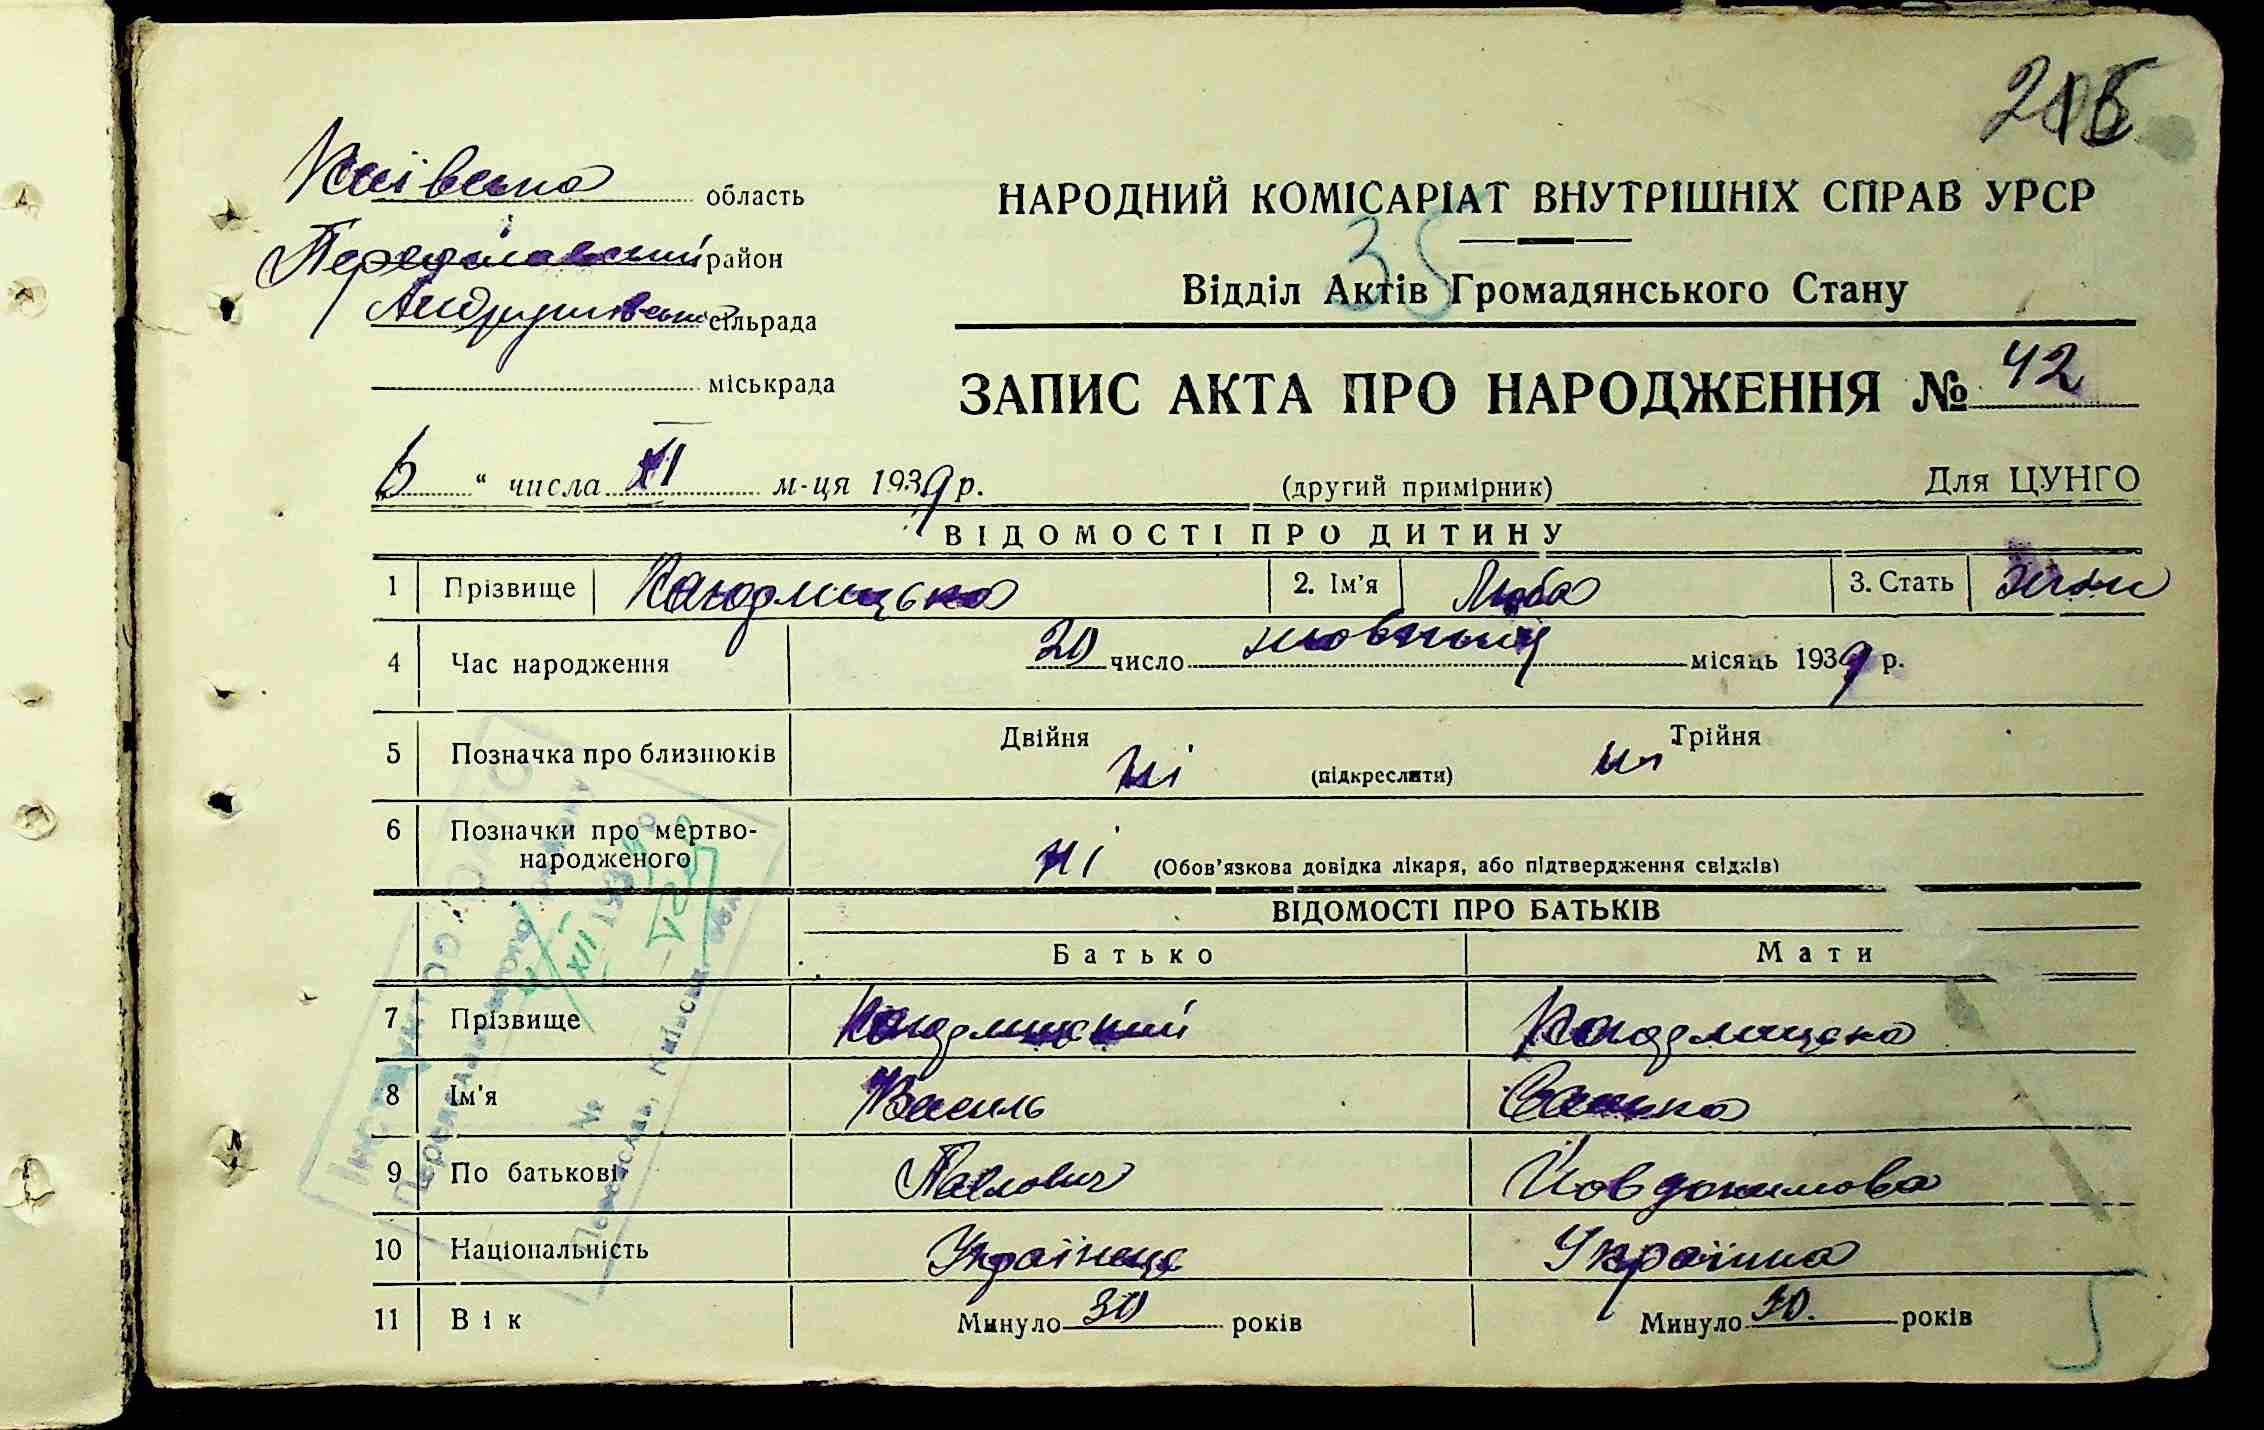 Київська область
Переяславський район
Андрушівська сільрада
міськрада
НАРОДНИЙ КОМІСАРІАТ ВНУТРІШНІХ СПРАВ УРСР
35
Відділ Актів Громадянського Стану
ЗАПИС АКТА ПРО НАРОДЖЕННЯ № 42
„6“ числа XI м-ця 1939 р.
(другий примірник)
Для ЦУНГО
ВІДОМОСТІ ПРО ДИТИНУ
1 Прізвище 2. Ім'я Люба 3. Стать жін
4 Час народження 20 число місяць 1939 р.
5 Позначка про близнюків Двійня ні (підкреслити) Трійня ні
6 Позначки про мертво-
народженого ні (Обов'язкова довідка лікаря, або підтвердження свідків)
ВІДОМОСТІ ПРО БАТЬКІВ
Батько Мати
7 Прізвище
8 Ім'я Василь
9 По батькові Павлович Йовдокимова
10 Національність Українець Українка
11 Вік Минуло 30 років Минуло 30. років